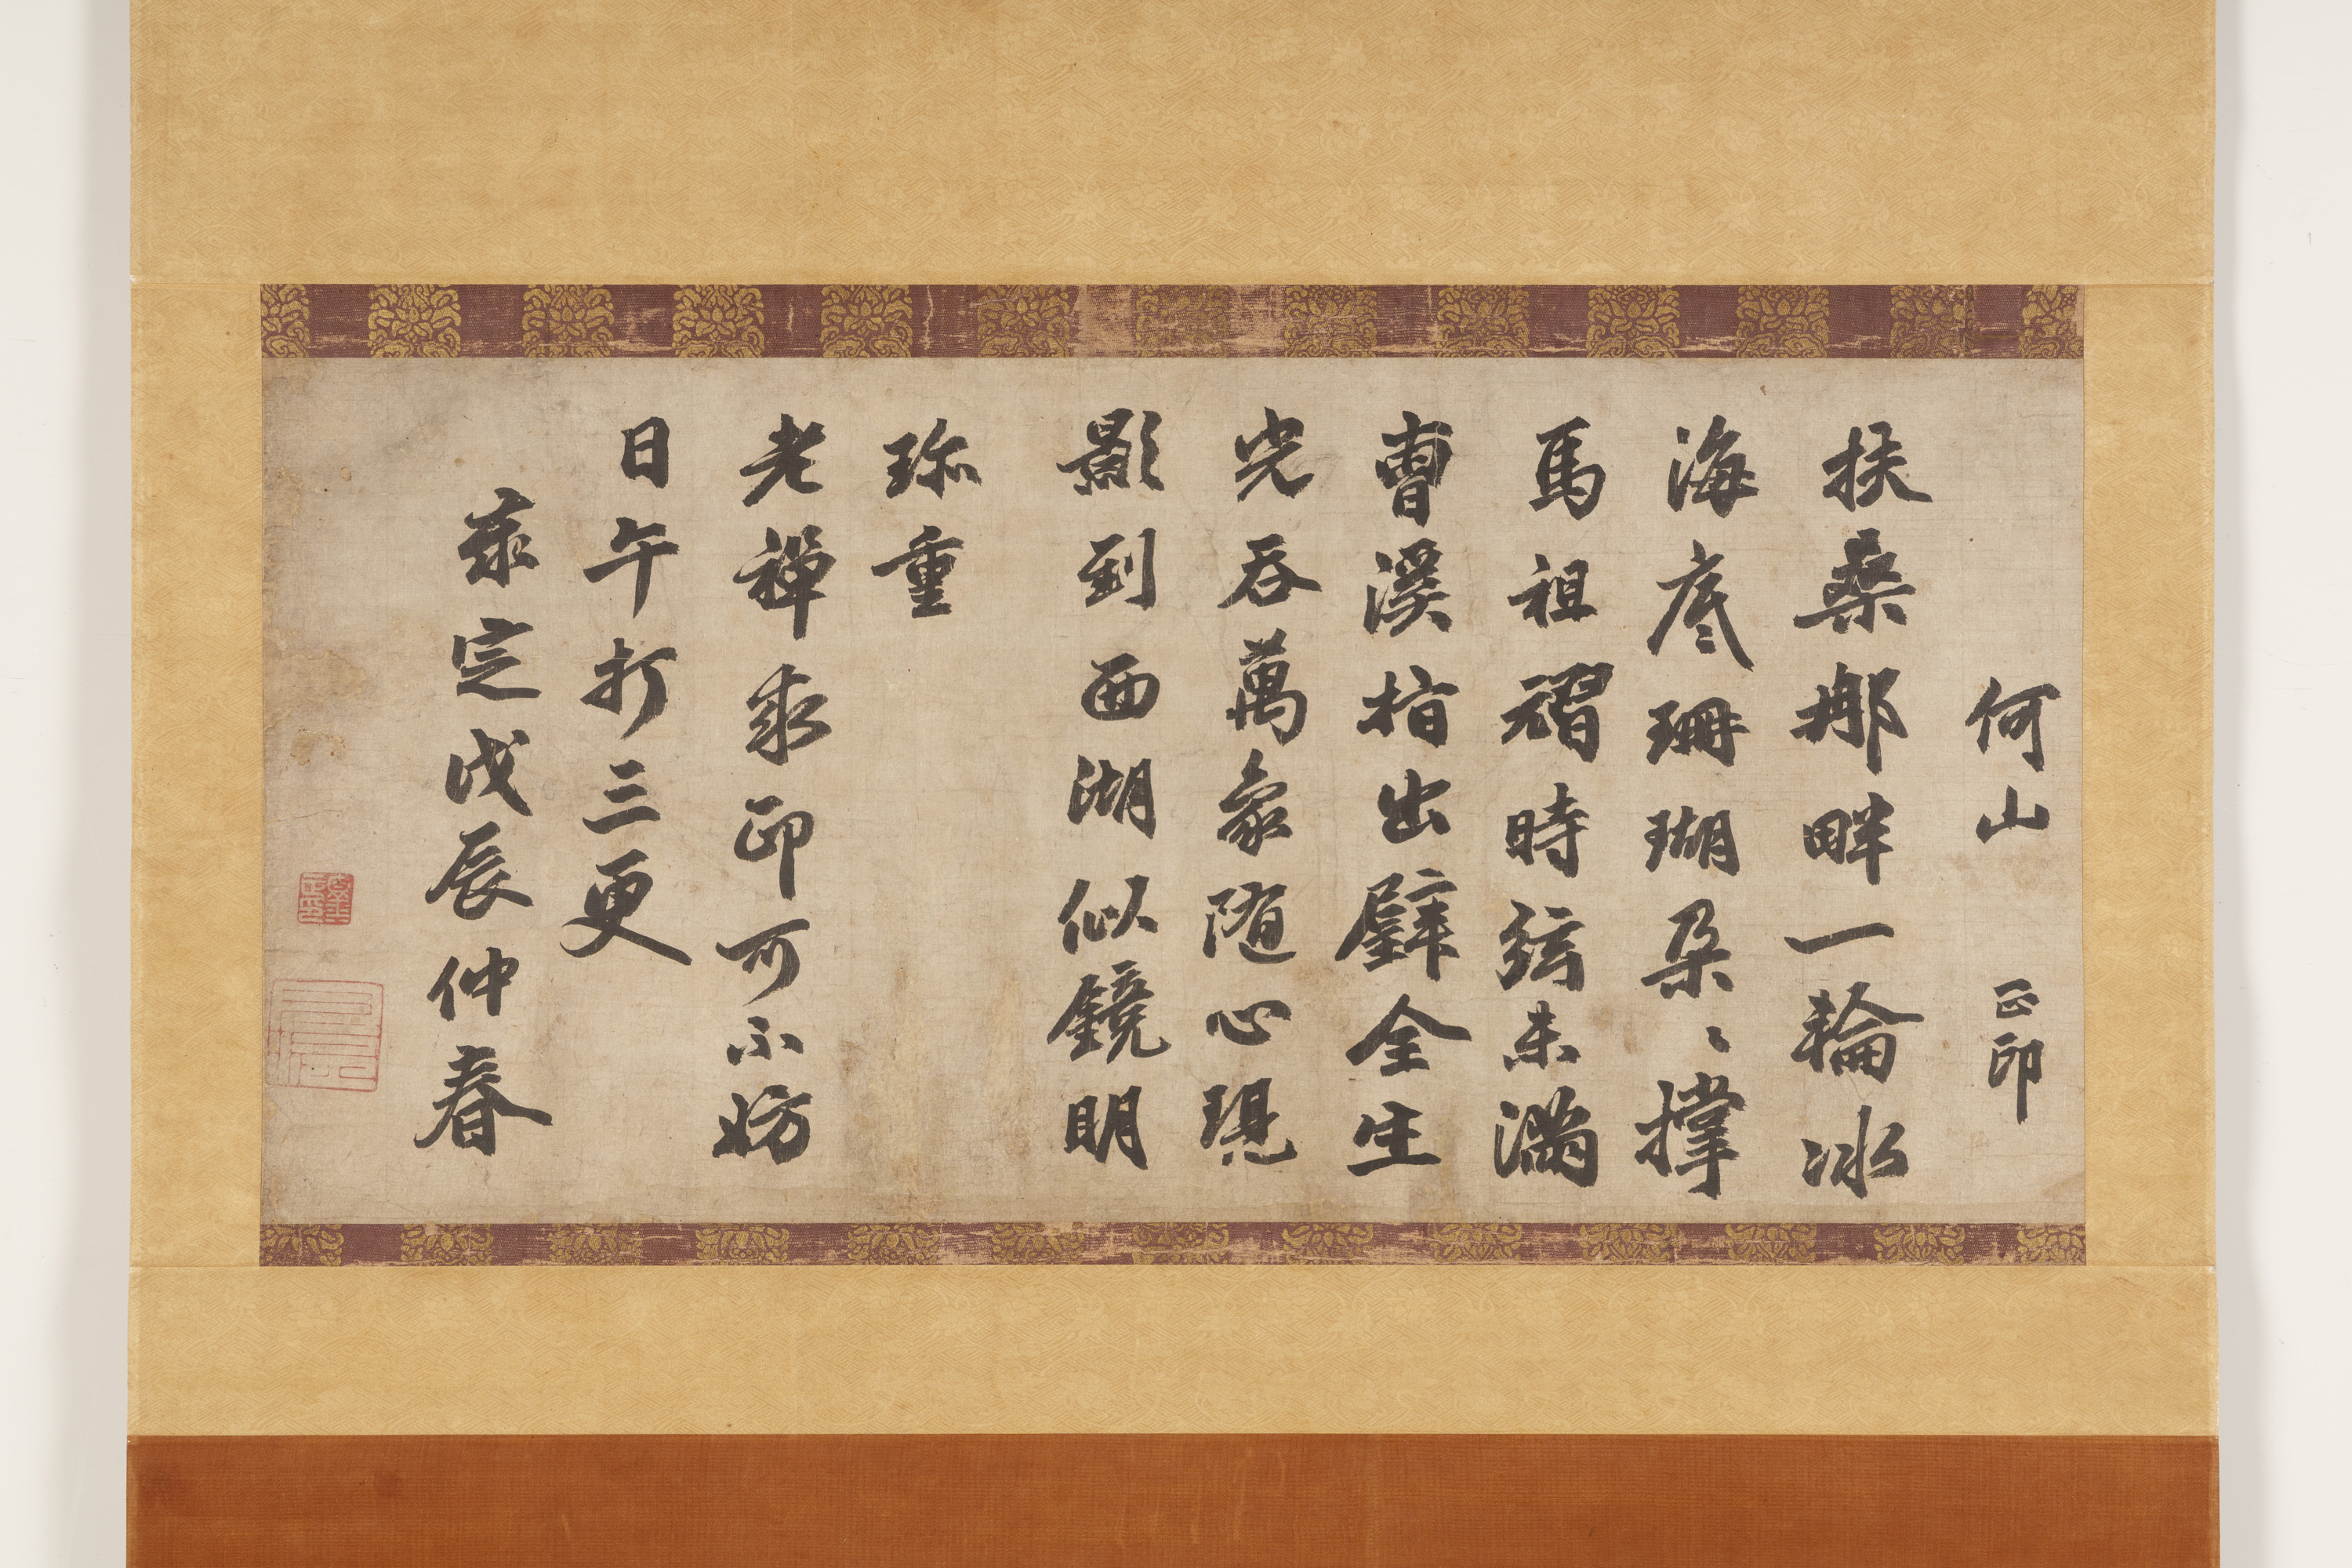 何山 正印
扶桑那畔一輪冰
海底珊瑚朶〻撑
馬祖翫時弦未滿
曹溪指出璧全生
光吞萬象随心現
影到西湖似鏡明
珎重
老禅承印可不妨
日午打三更
泰定戊辰仲春